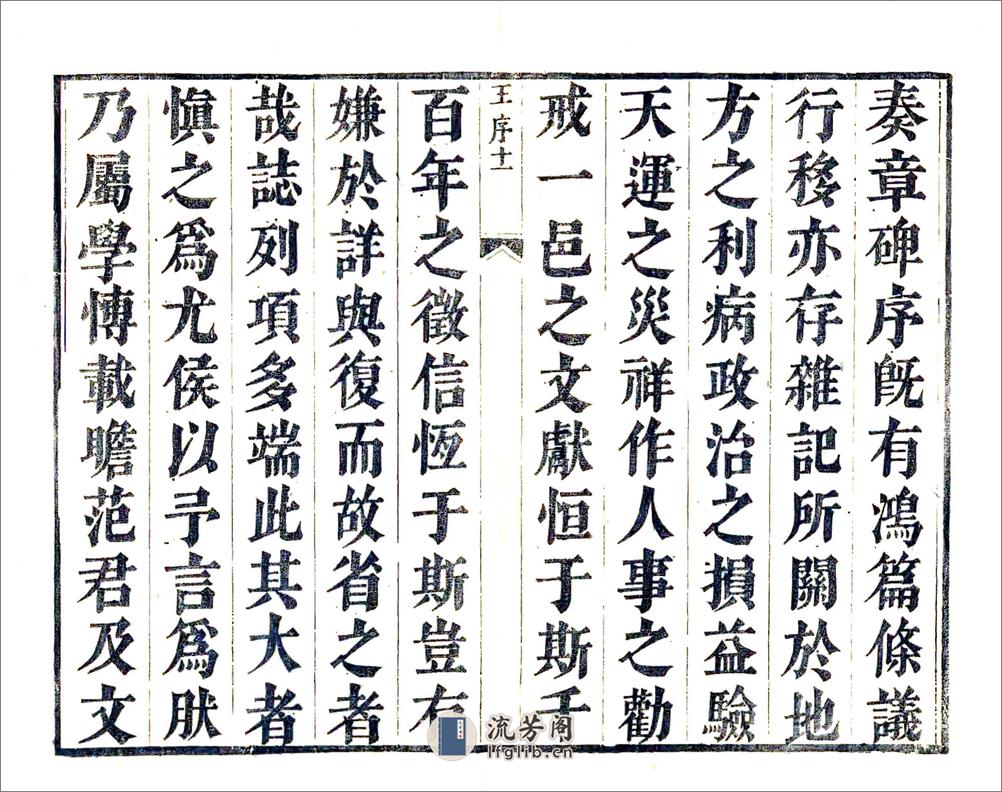 奏章碑序旣有鴻篇條議
行移亦存雜記所關於地
方之利病政治之損益驗
天運之災祥作人事之勸
戒一邑之文獻恒于斯千
王序十一
百年之徵信恆于斯豈有
嫌於詳與復而故省之者
哉誌列項多端此其大者
愼之爲尤侯以予言爲肰
乃屬學博載瞻范君及文
流芳阁
lfglib.cn